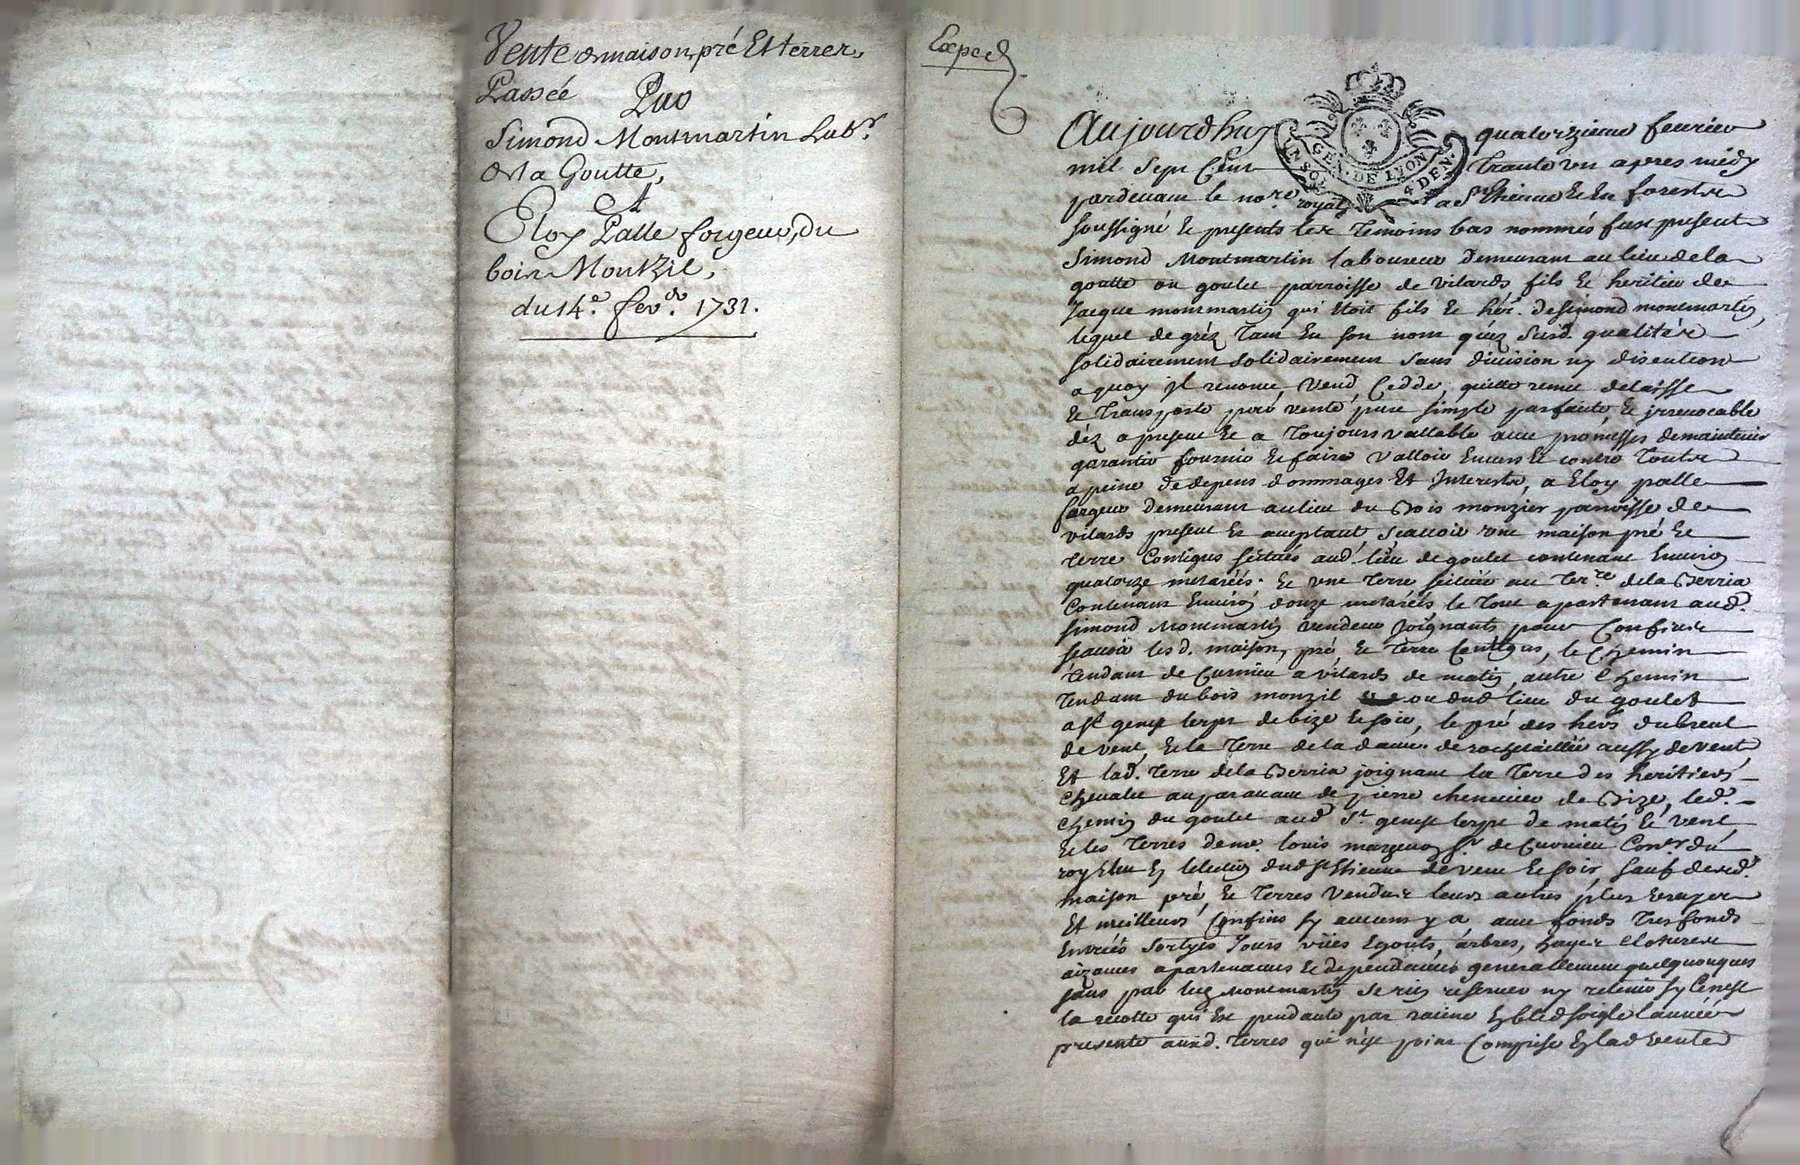 Vente de maison, pré Et terres,
Passée
Par
Simond Montmartin Labr.
de la Goutte,
A
Eloy Palle forgeur, du
bois Monkzil,
du 14e. fevr. 1731.
Exped
GEN. DE LYON
UN SOL
4 DEN.
Aujourdhuy quatorzieme fevrier
mil sept Cent trante un apres midy
pardevant le nore. royal a St Etienne Et En forest
soussigné Et presents les temoins bas nommés fust present
Simond Montmartin laboureur demeurant au lieu de la
goutte ou goulet parroisse de vilards fils Et heritier de
Jacque montmartin qui Etoit fils Et hér. de Simond montmartin,
lequel de gréz tant En son nom quéz susd. qualités
solidairement solidairement sans division ny discution
a quoy jl renonce, vend, Cedde, quitte remet delaisse
Et transporte par vente pure simple parfaite Et jrrevocable
déz a present Et a toujours vallable avec promesses de maintenir
garantir fournir Et faire valloir Envers Et contre toutes
a peine de depens dommages Et Interests, a Eloy palle
forgeur demeurant au lieu du Bois monzier parroisse de
vilards present Et aceptant scavoir une maison pré Et
terre Contigus scitués aud. lieu de goulet contenant Environ
quatorze meterées. Et une terre scituée au terre. de la Berria
Contenant Environ douze meterées le tout apartenant aud.
Simond Montmartin vendeur joignants pour Confins
scavoir lesd. maison, pré Et terre Contigus, le Chemin
tendant de Curnieu a vilards de matin, autre Chemin
tendant du bois monzil ou dud. lieu du goulet
a St genest lerpt de bize Et soir, le pré des hers dubreul
de vent, Et la terre de la dame de rochetaillée aussy de vent
Et lad. terre de la Berria joignant la terre des heritiers
Chevalier auparavant de pierre chenevier de Bize, led.
Chemin du goulet aud. St. genest lerpt de matin Et vent
Et les terres de mr. louis mazenoz Sr. de Curnieu Coner. du
roy Elu En lelection dud. St Etienne de vent Et soir, sauf desd.
maison pré, Et terres vendues leurs autres plus vrayes
Et meilleurs Confins sy aucuns y a avec fonds tresfonds
Entrées sortyes jours vües Egouts, arbres, hayes Clotures
aizances apartenances Et dependances generallement quelquonques
sans par led. Montmartin se rien reserver ny retenir sy Cenest
la recolte qui Est pendante par racine En bled soigle lannée
presente auxd. terres que n'est point Comprise En lad. vente